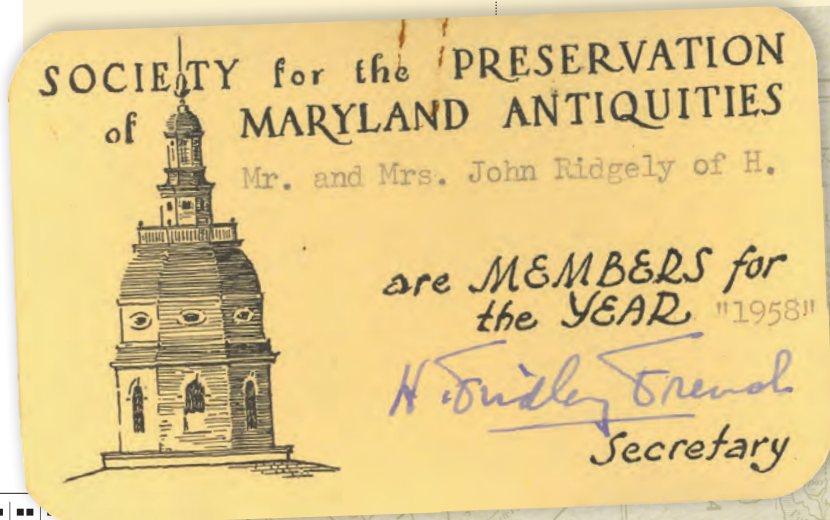 SOCIETY for the PRESERVATION
of MARYLAND ANTIQUITIES
Mr. and Mrs. John Ridgely of H.
are MEMBERS for
the YEAR "1958"
H. Findlay French
Secretary